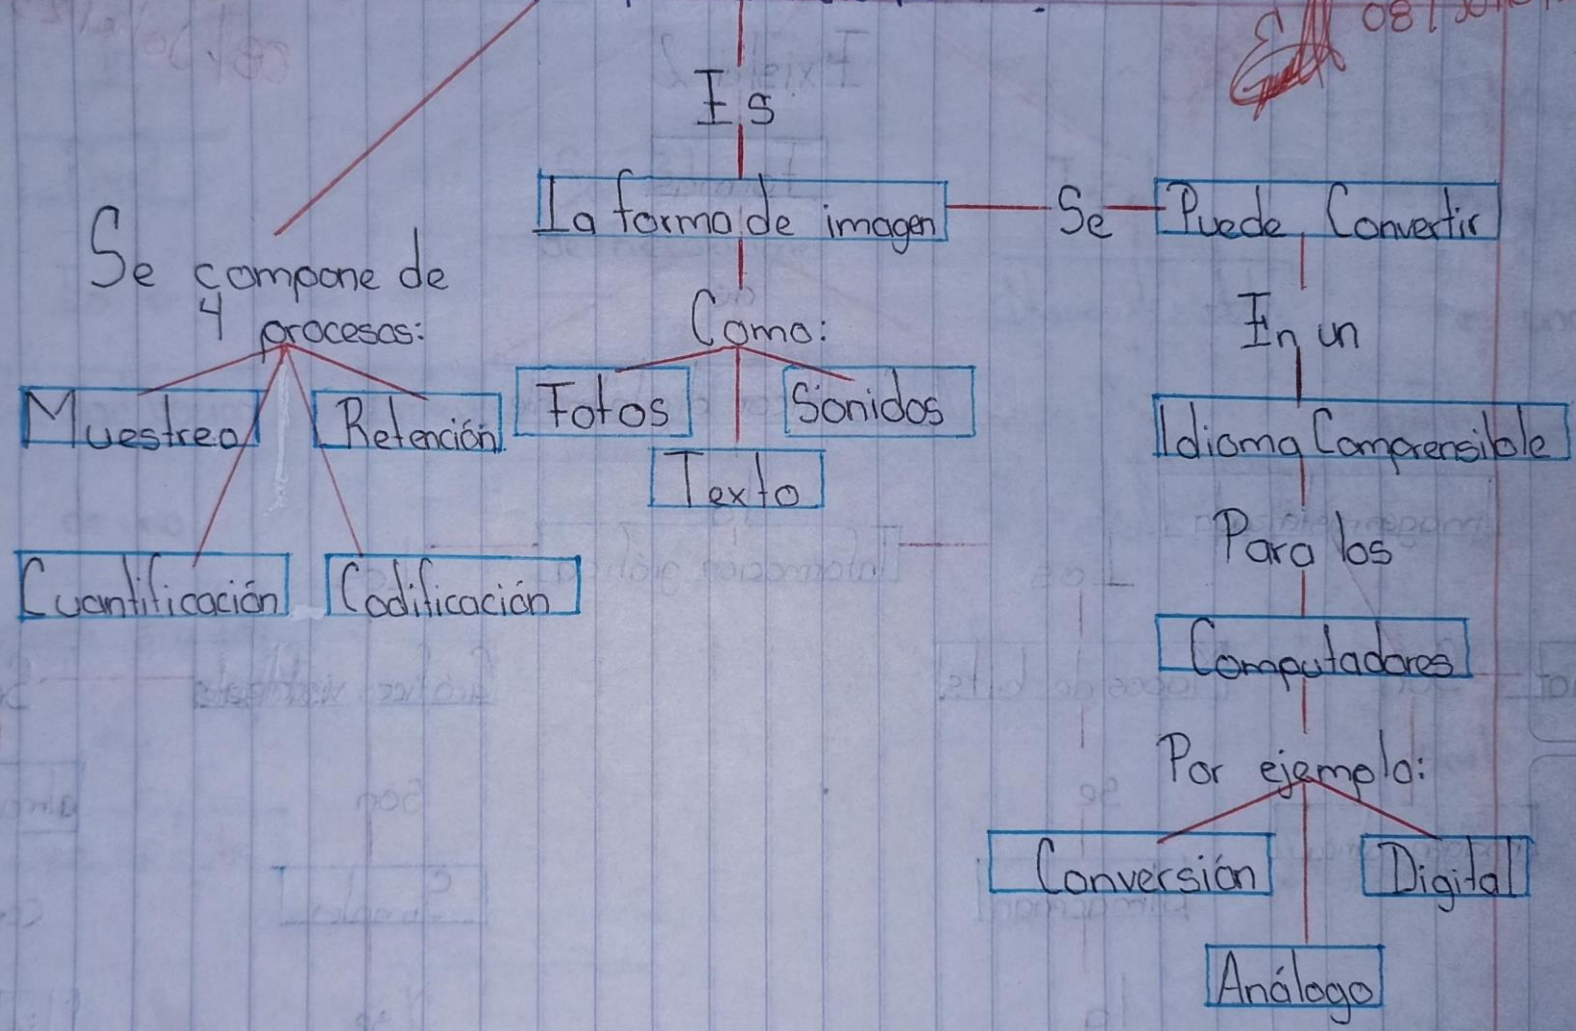 Es
La forma de imagen
Se
Puede Convertir
Se compone de
4 procesos:
Muestreo
Retención
Cuantificación
Codificación
Como:
Fotos
Sonidos
Texto
En un
Idioma Comprensible
Para los
Computadores
Por ejemplo:
Conversión
Digital
Análogo